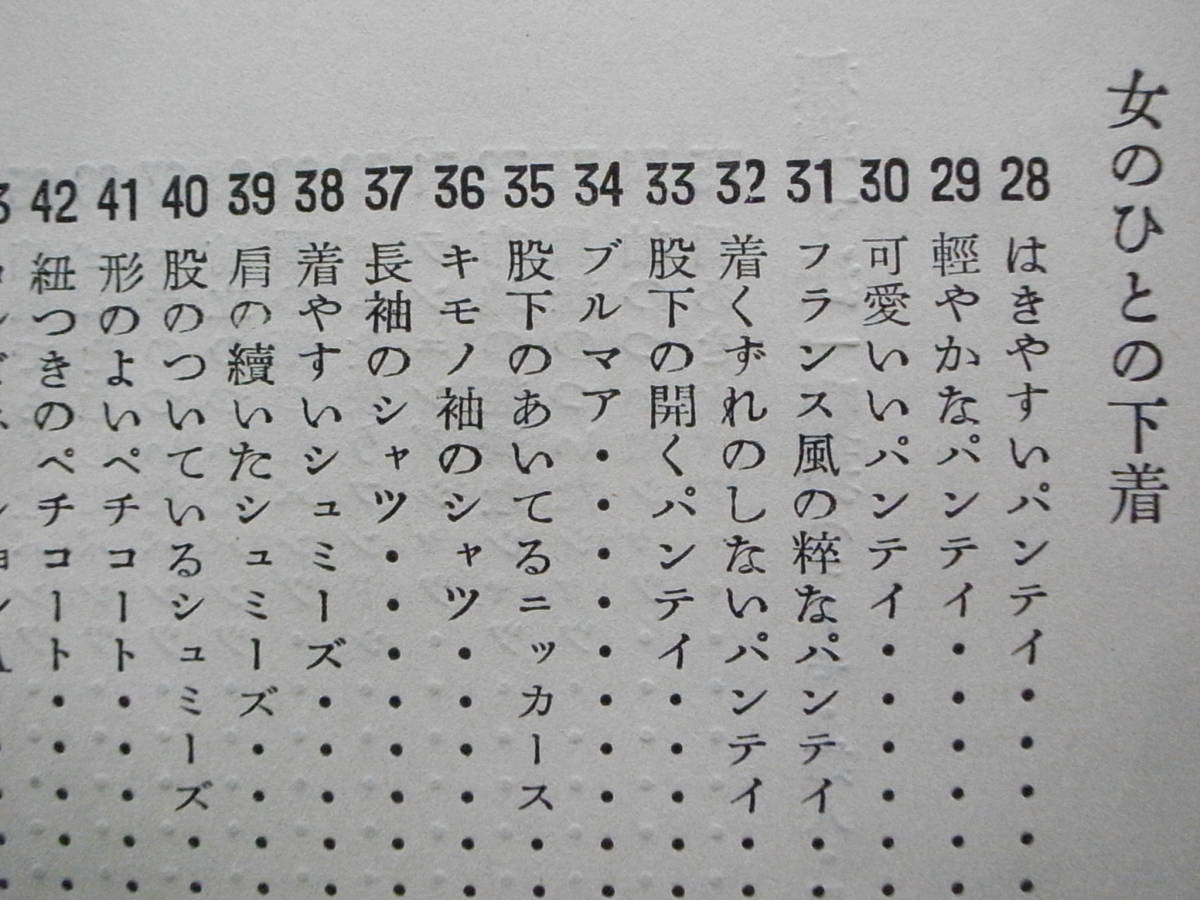 女のひとの下着
28 はきやすいパンテイ・・・・・
29 輕やかなパンテイ・・・・・・
30 可愛いいパンテイ・・・・・・
31 フランス風の粋なパンテイ・・
32 着くずれのしないパンテイ・・
33 股下の開くパンテイ・・・・・
34 ブルマア・・・・・・・・・・
35 股下のあいてるニッカース・・
36 キモノ袖のシャツ・・・・・・
37 長袖のシャツ・・・・・・・・
38 着やすいシュミーズ・・・・・
39 肩の續いたシュミーズ・・・・
40 股のついているシュミーズ・・
41 形のよいペチコート・・・・・
42 紐つきのペチコート・・・・・